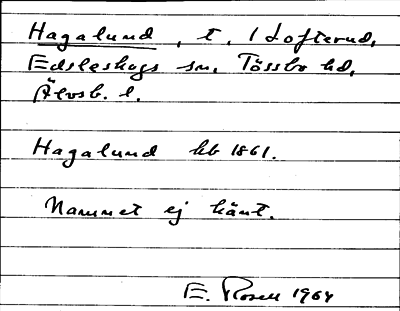 Hagalund, t. 1 Lofterud,
Edsleskogs sn, Tössbo hd,
Älvsb. l.
Hagalund hb 1861.
Namnet ej känt.
E. Rosell 1964